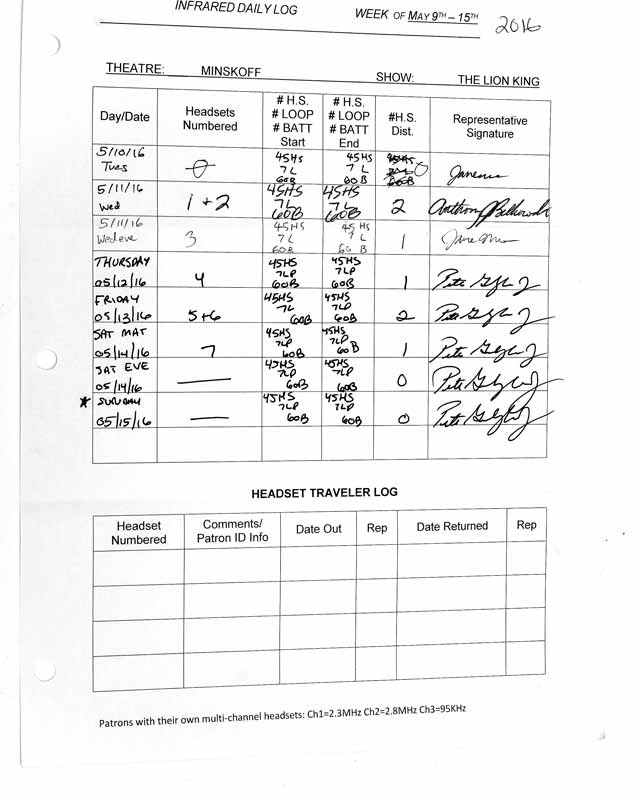 INFRARED DAILY LOG WEEK OF MAY 9TH – 15TH 2016
THEATRE: MINSKOFF SHOW: THE LION KING
Day/Date Headsets Numbered # H.S. # LOOP # BATT Start # H.S. # LOOP # BATT End #H.S. Dist. Representative Signature
5/10/16 Tues 0 45HS 7L 60B 45HS 7L 60B 0
5/11/16 Wed 1+2 45HS 7L 60B 45HS 7L 60B 2 Anthony
5/11/16 Wed eve 3 45HS 7L 60B 45 HS 7 L 60 B 1
THURSDAY 05/12/16 4 45HS 7LP 60B 45HS 7LP 60B 1 Pete
FRIDAY 05/13/16 5+6 45HS 7L 60B 45HS 7LP 60B 2 Pete
SAT MAT 05/14/16 7 45HS 7LP 60B 45HS 7LP 60B 1 Pete
SAT EVE 05/14/16 — 45HS 7LP 60B 45HS 7LP 60B 0 Pete
* SUNDAY 05/15/16 — 45HS 7LP 60B 45HS 7LP 60B 0 Pete
HEADSET TRAVELER LOG
Headset Numbered Comments/ Patron ID Info Date Out Rep Date Returned Rep
Patrons with their own multi-channel headsets: Ch1=2.3MHz Ch2=2.8MHz Ch3=95KHz